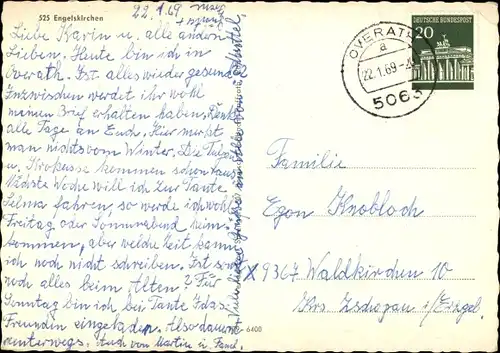 525 Engelskirchen
22.1.69
Liebe Karin u. alle andern
Lieben. Heute bin ich in
Overath. Ist alles wieder gesund
Inzwischen werdet ihr wohl
meinen Brief erhalten haben. Denke
alle Tage an Euch. Hier merkt
man nichts vom Winter. Die Tulpen
u. Krokusse kommen schon raus
Nächste Woche will ich zur Tante
Selma fahren, so werde ich wohl
Freitag oder Sonnabend heim-
kommen, aber welche Zeit kann
ich noch nicht schreiben. Ist sonst
noch alles beim Alten? Für
Sonntag bin ich bei Tante Idas
Freundin eingeladen. Also dauernd
unterwegs. Auch von Martin u. Fam.
6400
OVERATH
a
22.1.69
506
DEUTSCHE BUNDESPOST
20
Familie
Egon Knobloch
X 9367 Waldkirchen 10
Krs Zschopau i/Erzgeb.